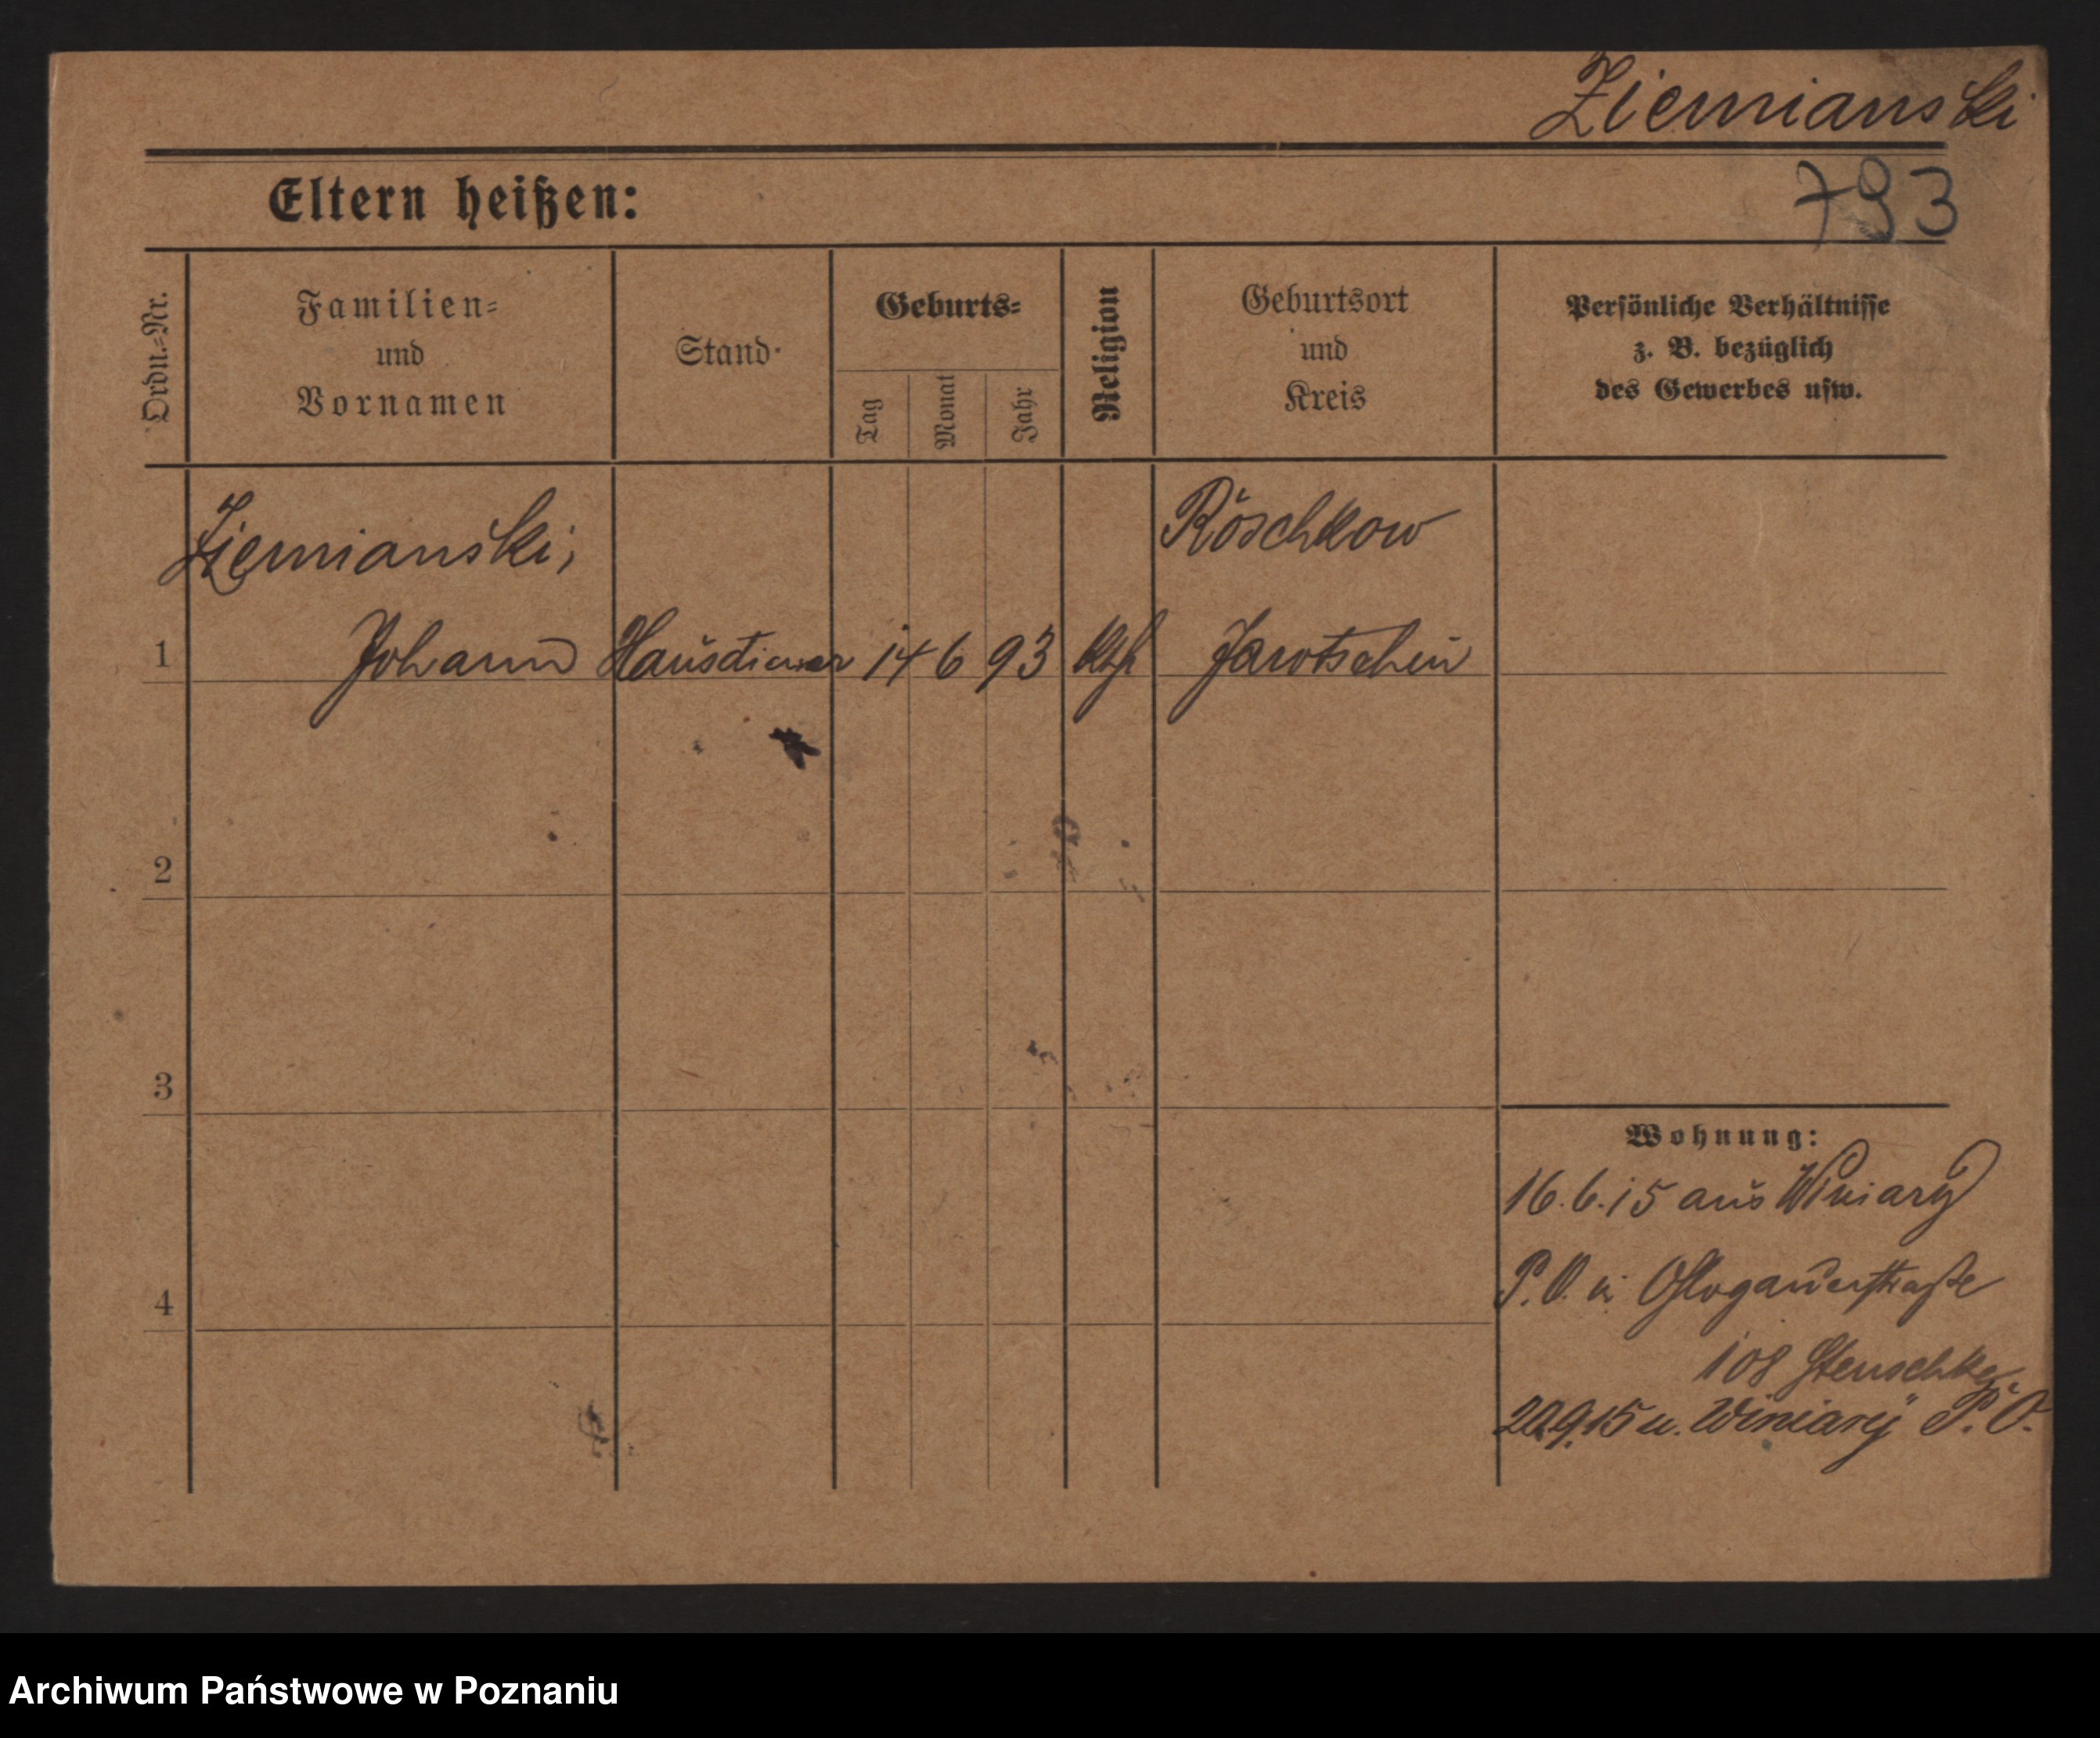 Ziemianski
793
Eltern heißen:
Ordn.-Nr.
Familien-
und
Vornamen
Stand
Geburts-
Tag
Monat
Jahr
Religion
Geburtsort
und
Kreis
Persönliche Verhältnisse
z. B. bezüglich
des Gewerbes usw.
Ziemianski,
Röschkow
1 Johann Hausdiener 14 6 93 kth Jarotschin
2
3
4
Wohnung:
16.6.15 aus Winiary
P.O. n. Glogauerstraße
108
9.15 u. Winiary P.O.
Archiwum Państwowe w Poznaniu